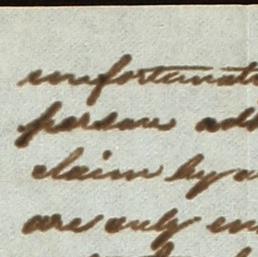 unfortunat
persons add
claim by a
are only en